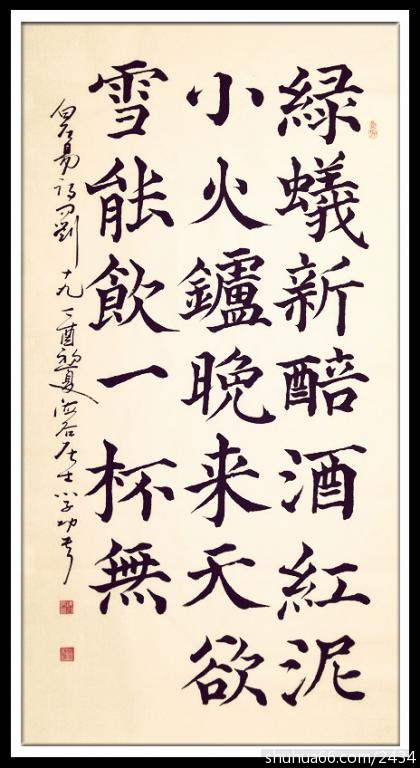 緑蟻新醅酒紅泥
小火鑪晚来天欲
雪能飲一杯無
白居易詩问劉十九丁酉初夏谷居士
shuhua66.com/2434